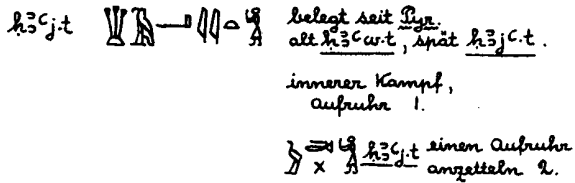 ḥꜣꜥj.t 𓇉𓄿𓂝𓇋𓇋𓏏𓀜 belegt seit Pyr.
alt ḥꜣꜥw.t, spät ḥꜣjꜥ.t.
innerer Kampf,
Aufruhr 1.
ḥꜣꜥj.t einen Aufruhr
anzetteln 2.